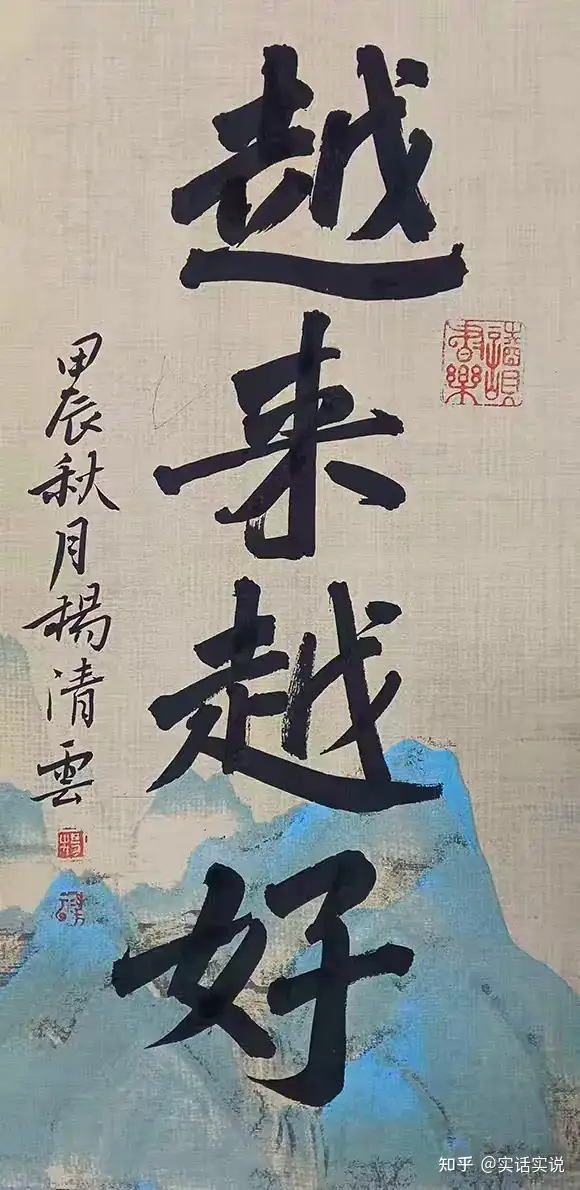 越来越好
甲辰秋月楊清雲
知乎 @实话实说